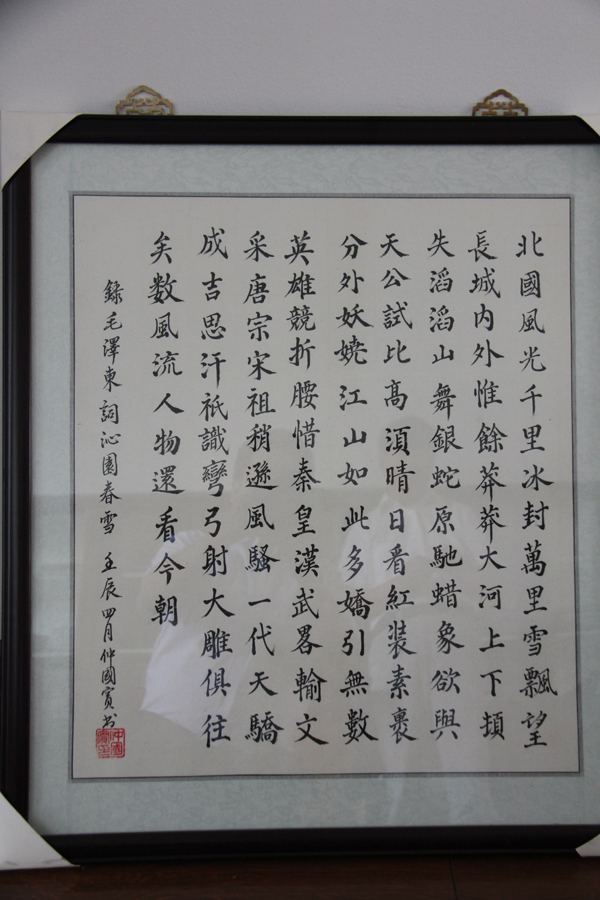 北國風光千里冰封萬里雪飄望
長城内外惟餘莽莽大河上下頃
失滔滔山舞銀蛇原馳蜡象欲與
天公試比高須晴日看紅装素裹
分外妖嬈江山如此多嬌引無數
英雄競折腰惜秦皇漢武畧輸文
采唐宗宋祖稍遜風騷一代天驕
成吉思汗祇識彎弓射大雕俱往
矣数風流人物還看今朝
錄毛澤東詞沁園春雪 壬辰四月仲國賓书